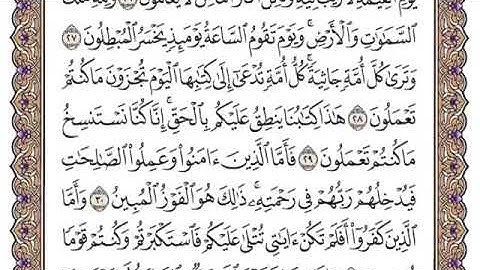 يَوْمِ ٱلْقِيَٰمَةِ لَا رَيْبَ فِيهِ وَلَٰكِنَّ أَكْثَرَ ٱلنَّاسِ لَا يَعْلَمُونَ ٢٦ وَلِلَّهِ مُلْكُ
ٱلسَّمَٰوَٰتِ وَٱلْأَرْضِ ۚ وَيَوْمَ تَقُومُ ٱلسَّاعَةُ يَوْمَئِذٍ يَخْسَرُ ٱلْمُبْطِلُونَ ٢٧
وَتَرَىٰ كُلَّ أُمَّةٍ جَاثِيَةً ۚ كُلُّ أُمَّةٍ تُدْعَىٰٓ إِلَىٰ كِتَٰبِهَا ٱلْيَوْمَ تُجْزَوْنَ مَا كُنتُمْ
تَعْمَلُونَ ٢٨ هَٰذَا كِتَٰبُنَا يَنطِقُ عَلَيْكُم بِٱلْحَقِّ ۚ إِنَّا كُنَّا نَسْتَنسِخُ
مَا كُنتُمْ تَعْمَلُونَ ٢٩ فَأَمَّا ٱلَّذِينَ ءَامَنُوا۟ وَعَمِلُوا۟ ٱلصَّٰلِحَٰتِ
فَيُدْخِلُهُمْ رَبُّهُمْ فِى رَحْمَتِهِۦ ۚ ذَٰلِكَ هُوَ ٱلْفَوْزُ ٱلْمُبِينُ ٣٠ وَأَمَّا
ٱلَّذِينَ كَفَرُوٓا۟ أَفَلَمْ تَكُنْ ءَايَٰتِى تُتْلَىٰ عَلَيْكُمْ فَٱسْتَكْبَرْتُمْ وَكُنتُمْ قَوْمًا